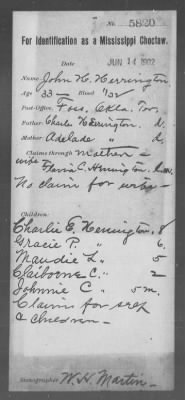 No. 5820
For Identification as a Mississippi Choctaw.
Date JUN 14 1902
Name John H. Herrington
Age 33 Blood 1/32
Post-Office, Foss, Okla. Ter.
Father: Charles Herrington. d.
Mother Adelade " d.
Claims through mother &
wife Fannie C. Herrington.
No claim for wife-
Children:
Charlie E. Herrington. 8
Gracie P. " 6.
Maudie L. " 5
Claiborne C. " 2
Johnnie C " 5 m.
Claims for self
& children-
Stenographer W. H. Martin-